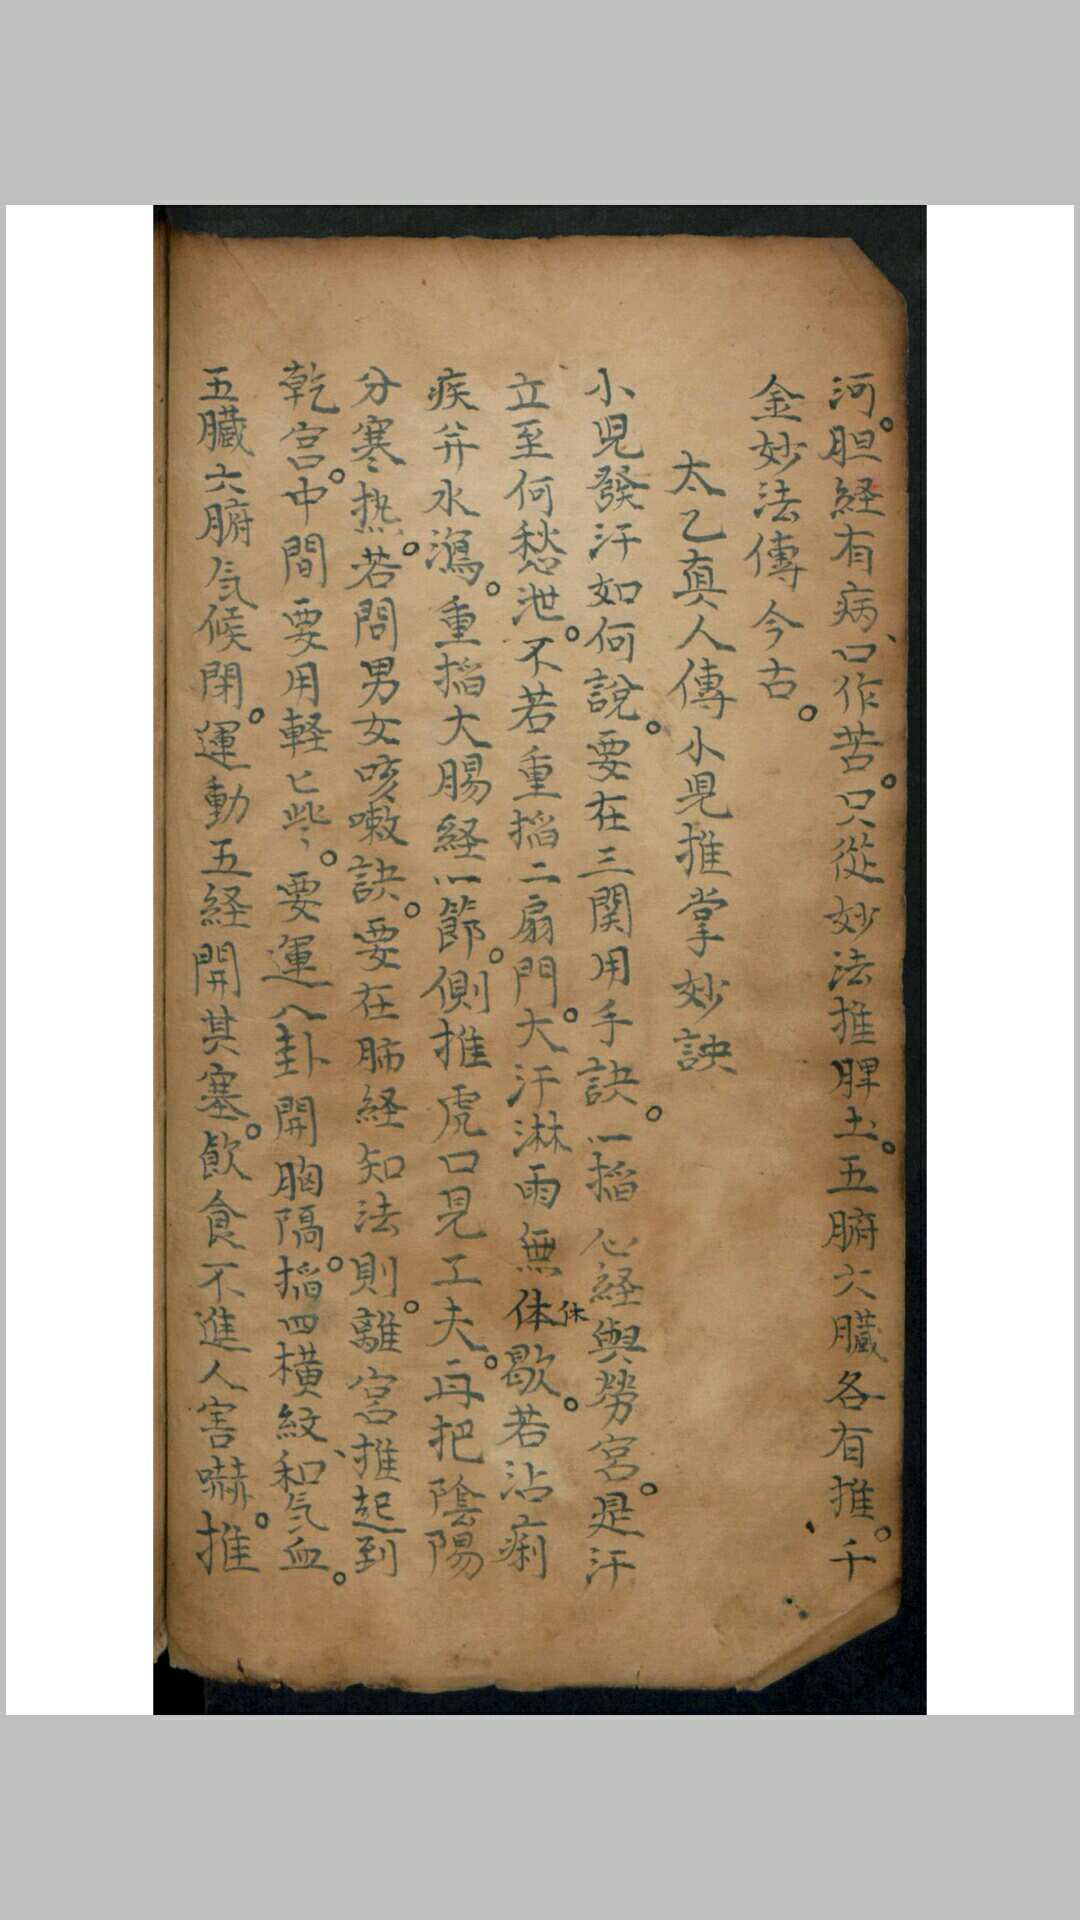 河。胆経有病、口作苦。只從妙法推脾土。五腑六臓各有推。千
金妙法傳今古。
太乙真人傳小児推掌妙訣
小児發汗如何說。要在三関用手訣。一掐心経與勞宮。是汗
立至何愁泄。不若重掐二扇門。大汗淋雨無体休歇。若沾痢
疾并水瀉。重掐大腸経一節。側推虎口見工夫。再把陰陽
分寒热。若問男女咳嗽訣。要在肺経知法則。離宮推起到
乾宮。中間要用軽匕些々。要運八卦開胸隔。掐四横紋、和气血。
五臓六腑气候閉。運動五経開其塞。飲食不進人害嚇。推